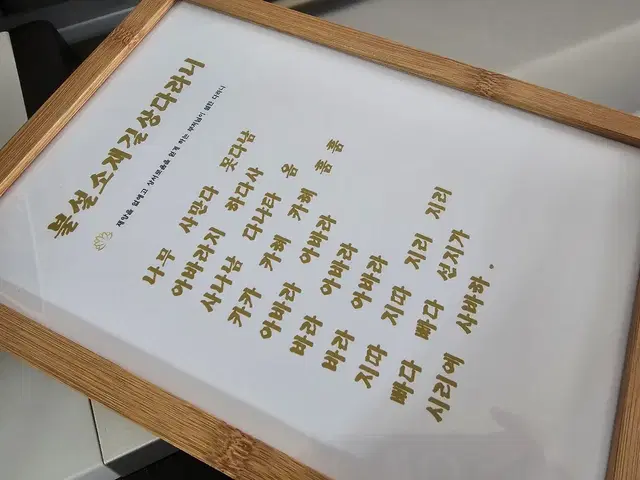 불설소재길상다라니
재앙을 없애고 상서로움을 얻게 하는 부처님이 설한 다라니
나무 사만다 못다남
아바라지 하다사
사나남 다나타 옴
카카 카혜 카혜 훔 훔
아바라 아바라
바라 아바라
바라 아바라
지따 지따 지리 지리
빠다 빠다 선지가
시리에 사바하.